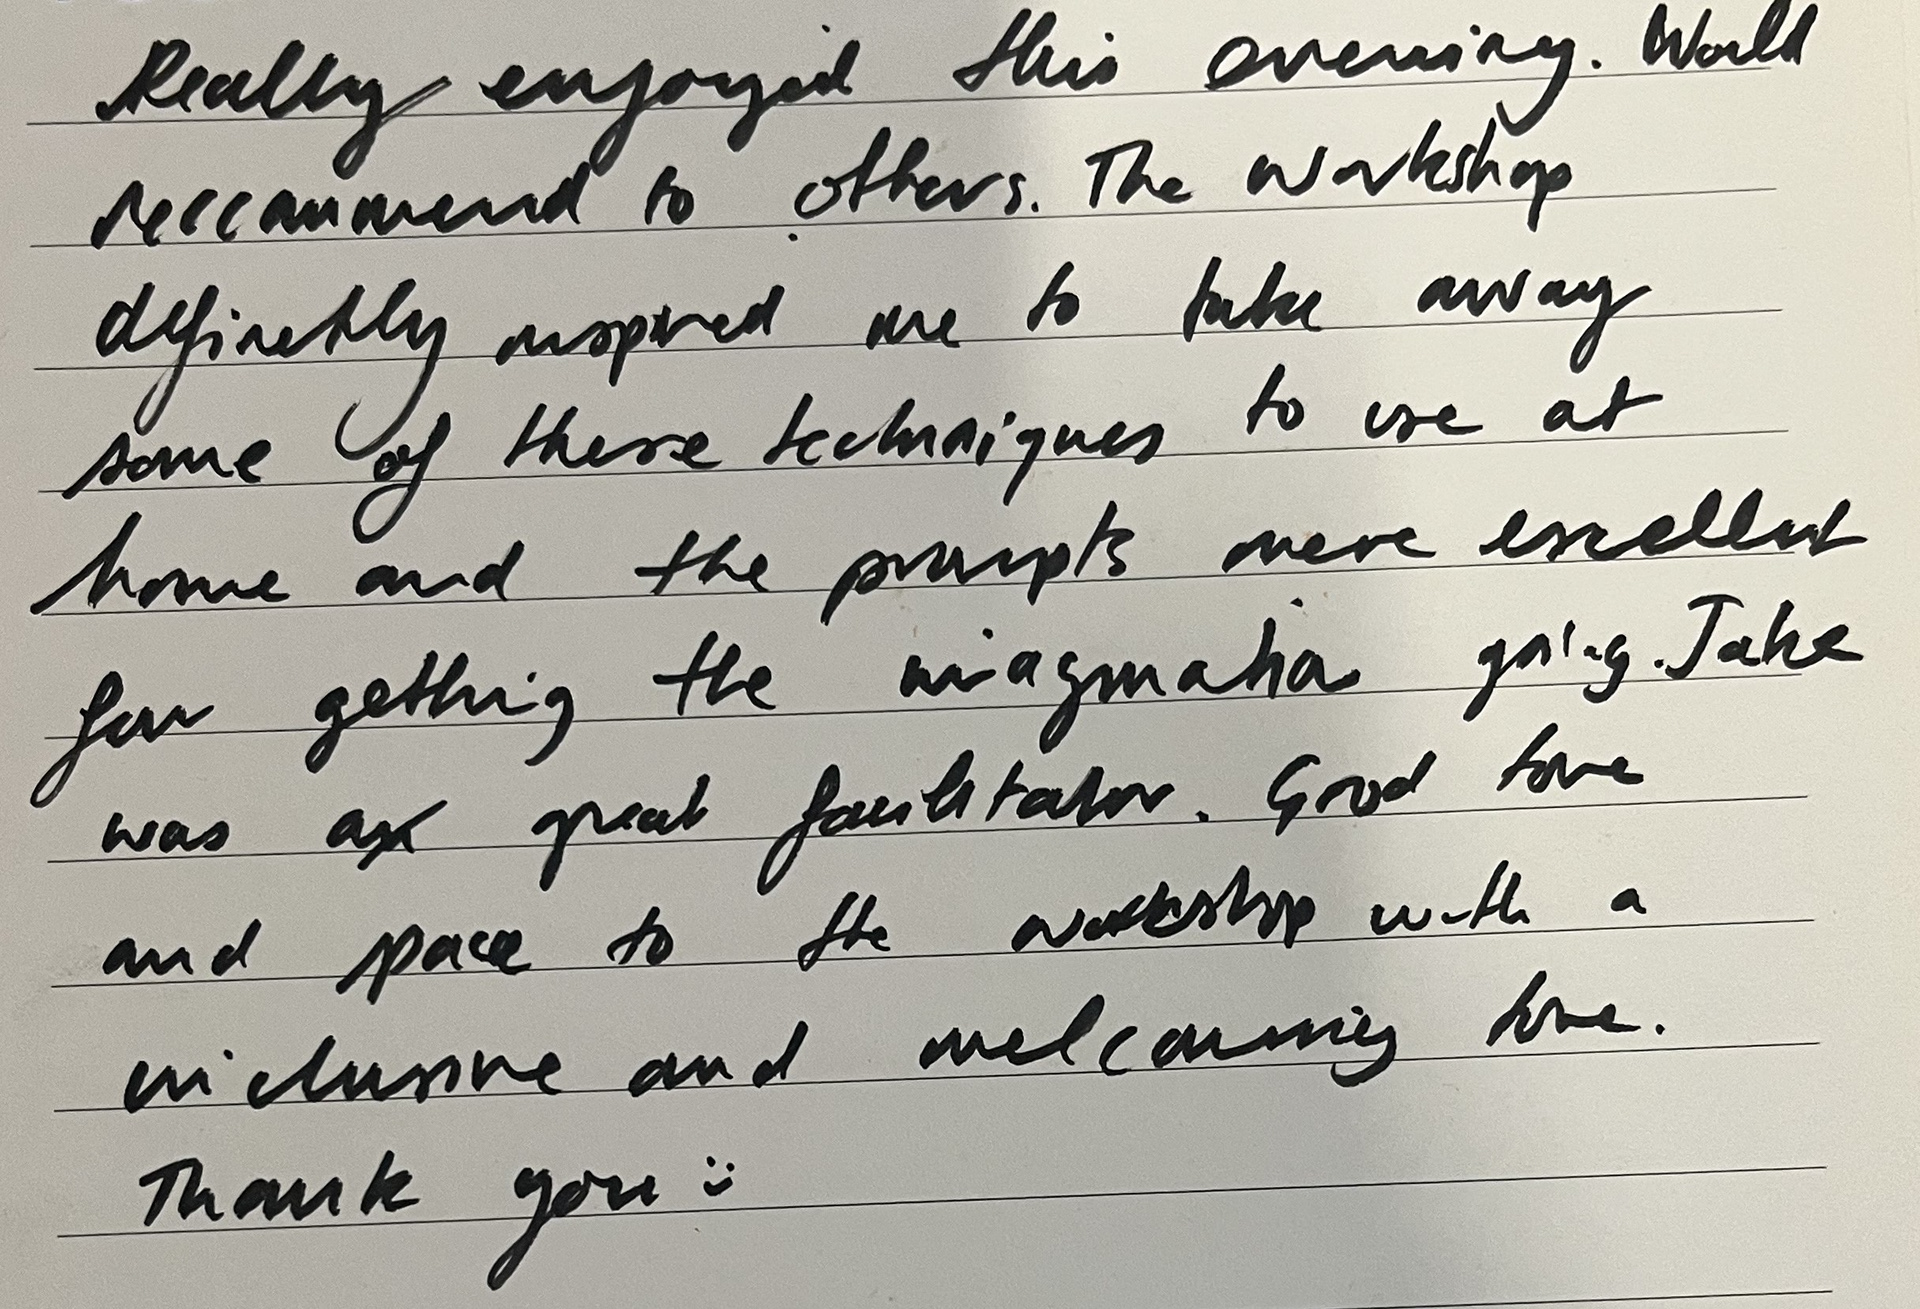 Really enjoyed this evening. Would
reccommend to others. The workshop
definetly inspired me to take away
some of these techniques to use at
home and the prompts were excellent
for getting the imagination going. Jake
was a great facilitator. Good tone
and space to the workshop with a
inclusive and welcoming tone.
Thank you :)